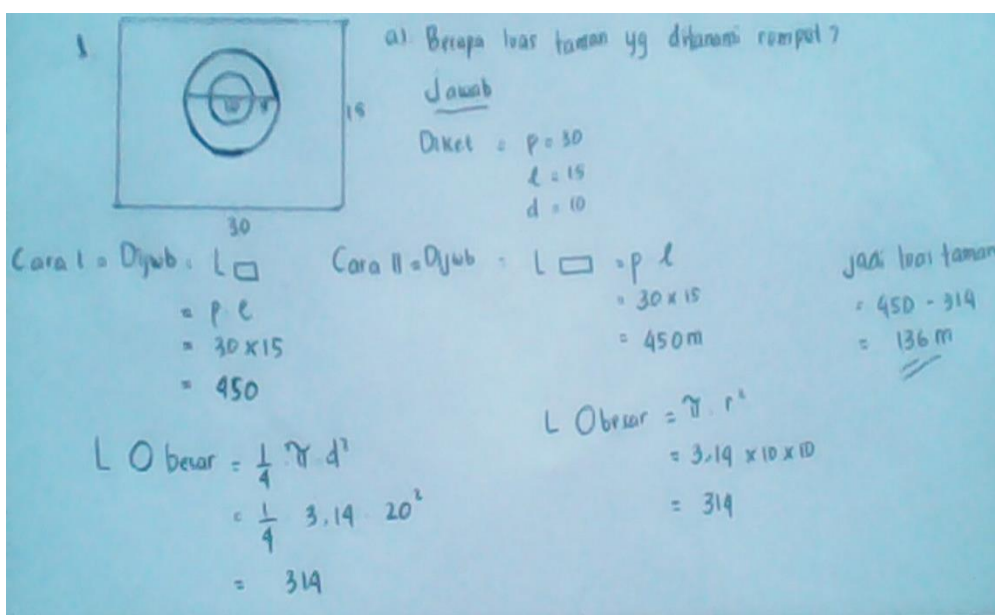 1.
a) Berapa luas taman yg ditanami rumput?
Jawab
15
Diket = p = 30
l = 15
d = 10
30
Cara I = Dijwb : L ▭
= p l
= 30 x 15
= 450
L O besar = 1/4 π d²
= 1/4 3,14 20²
= 314
Cara II = Dijwb : L ▭ = p l
= 30 x 15
= 450 m
L O besar = π . r²
= 3,14 x 10 x 10
= 314
jadi luas taman
= 450 - 314
= 136 m